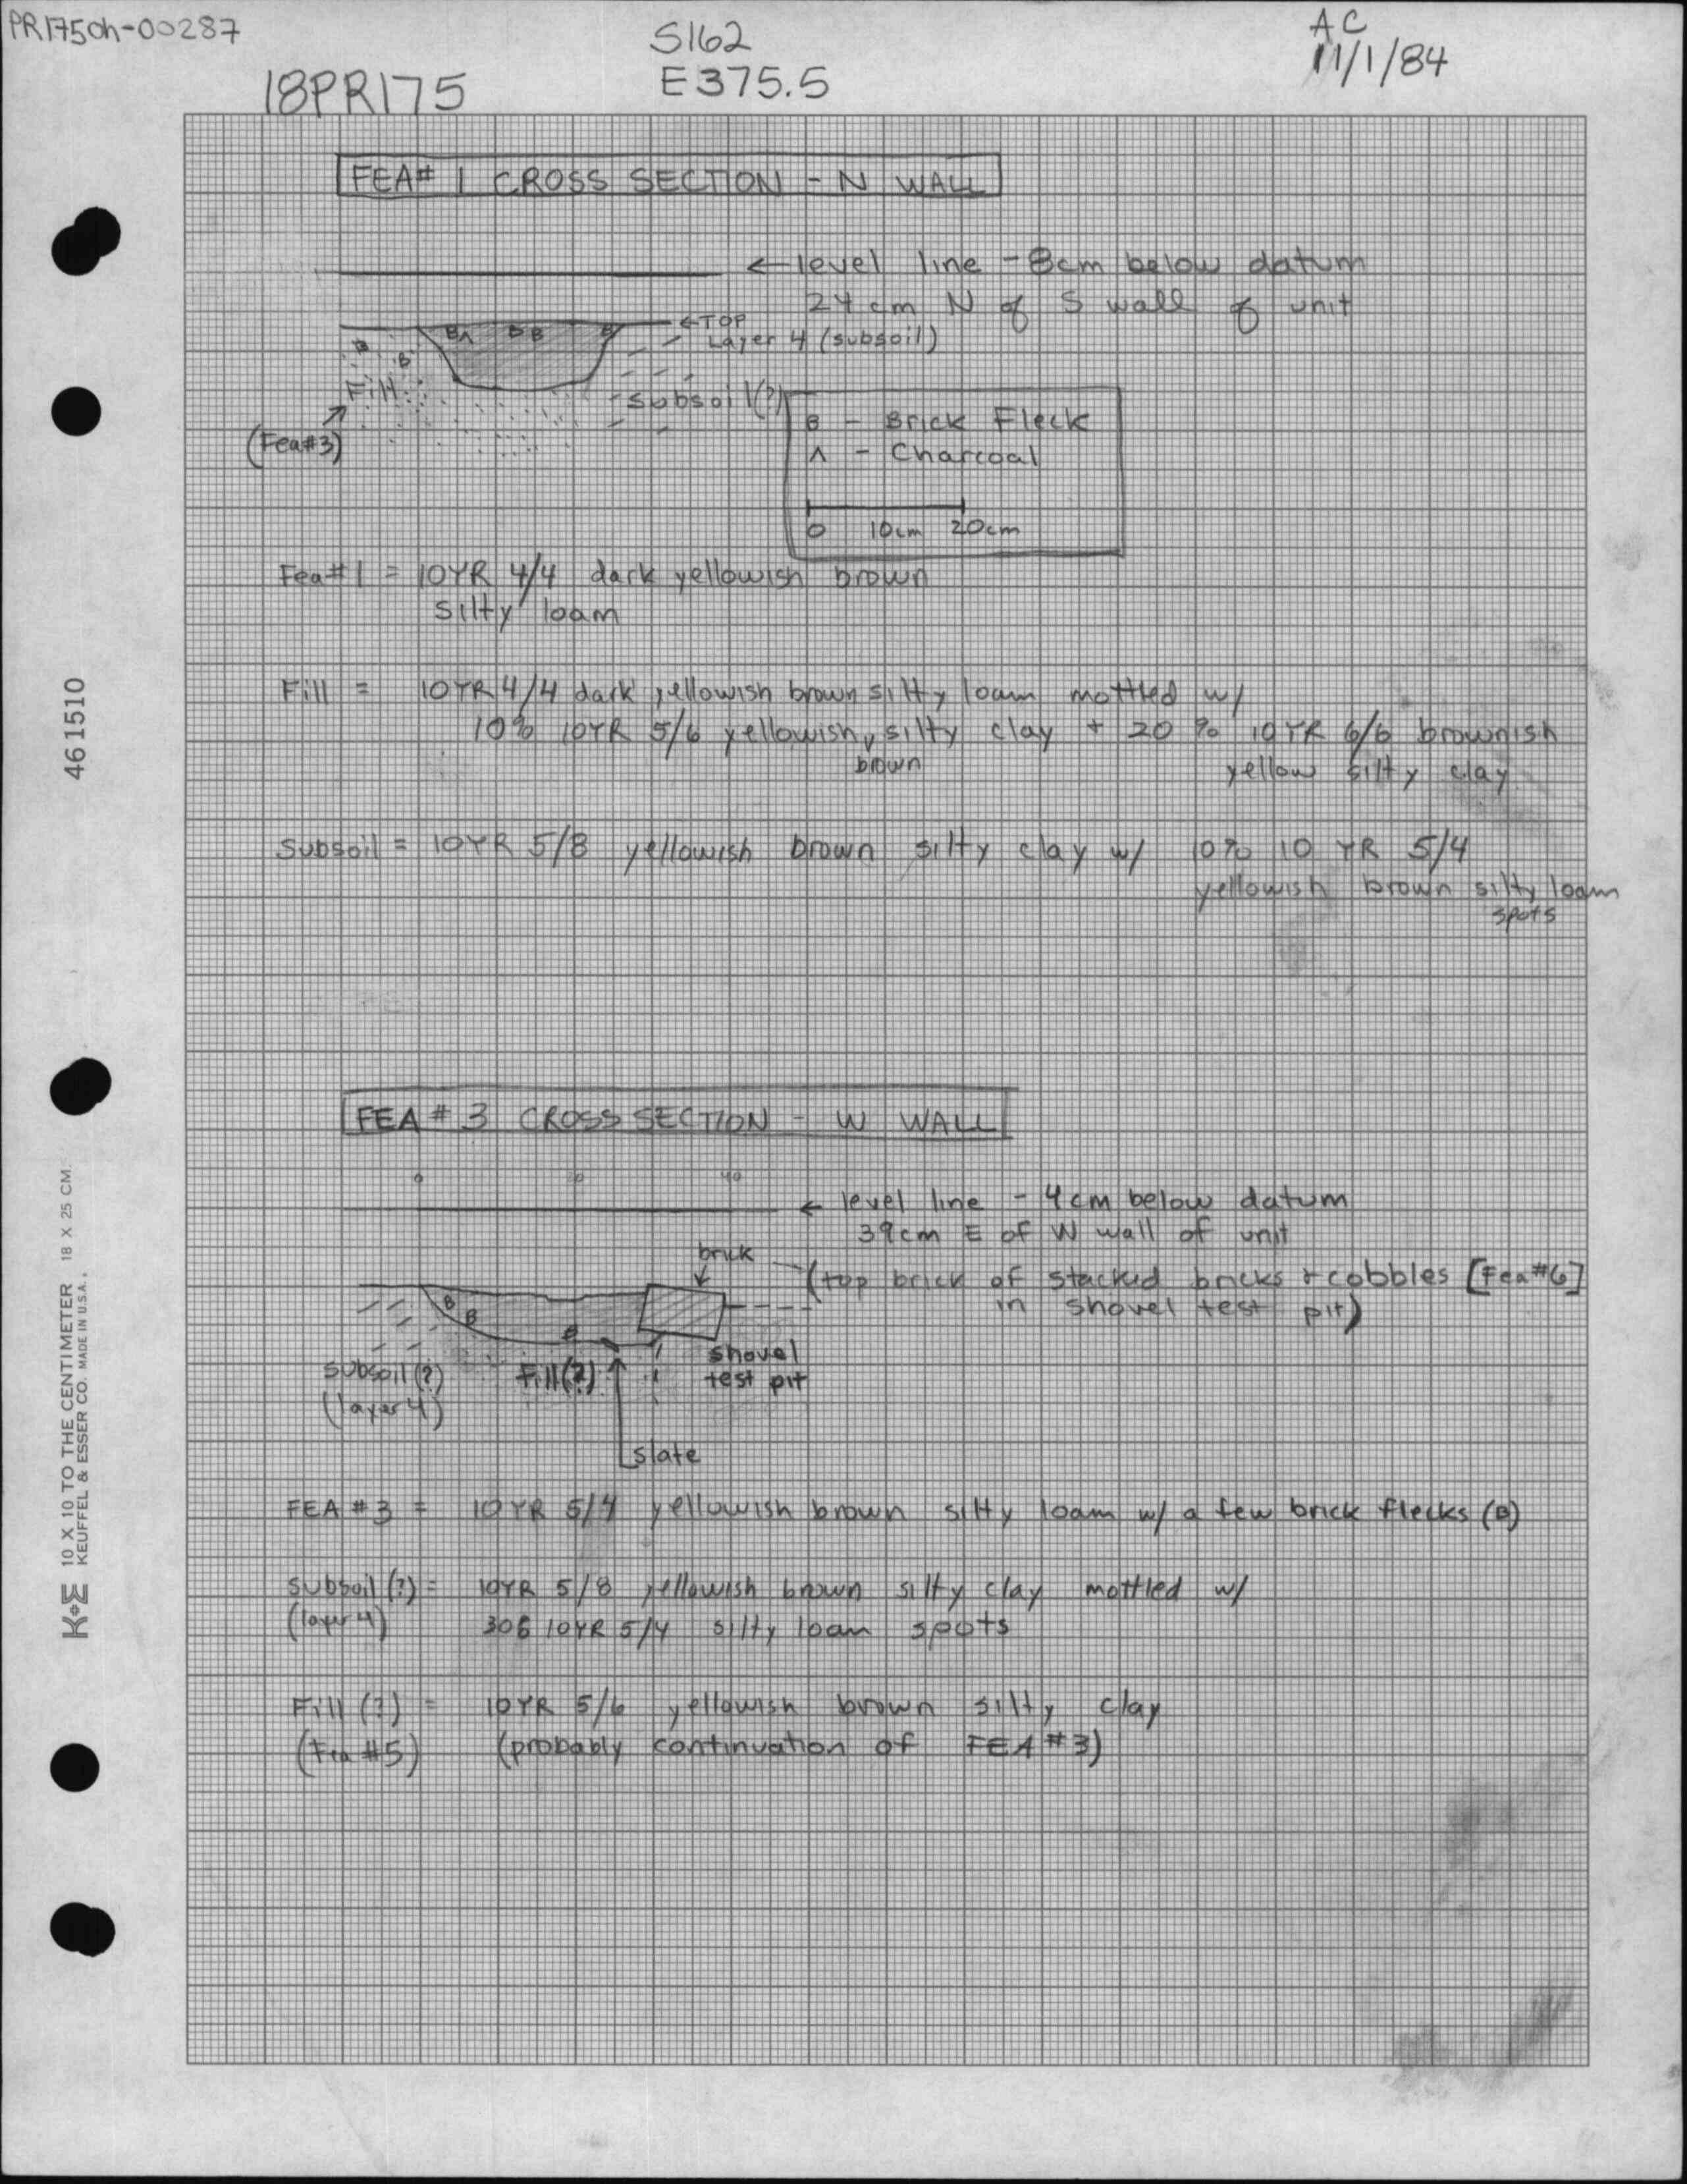 PR175Oh-00287
S162
E375.5
AC
11/1/84
18PR175
FEA# 1 CROSS SECTION - N WALL
← level line - 8cm below datum
24 cm N of S wall of unit
←TOP
Layer 4 (subsoil)
B Λ B B B
B
B
Fill
(Fea#3)
Subsoil(?)
B - Brick Fleck
Λ - Charcoal
0 10cm 20cm
Fea#1 = 10YR 4/4 dark yellowish brown
silty loam
Fill = 10YR 4/4 dark yellowish brown silty loam mottled w/
10% 10YR 5/6 yellowish, silty clay + 20% 10YR 6/6 brownish
brown
yellow silty clay
Subsoil = 10YR 5/8 yellowish brown silty clay w/ 10% 10 YR 5/4
yellowish brown silty loam
spots
FEA # 3 CROSS SECTION - W WALL
0 20 40
← level line - 4cm below datum
39cm E of W wall of unit
brick
(top brick of stacked bricks + cobbles [Fea#6]
in shovel test pit)
B
B
B
subsoil (?)
(layer 4)
Fill(?)
shovel
test pit
slate
FEA # 3 = 10 YR 5/4 yellowish brown silty loam w/ a few brick flecks (B)
subsoil (?) = 10YR 5/8 yellowish brown silty clay mottled w/
(layer 4)
10YR 5/4 silty loam spots
Fill (?) = 10YR 5/6 yellowish brown silty clay
(Fea #5) (probably continuation of FEA #3)
461510
K+E 10 X 10 TO THE CENTIMETER 18 X 25 CM.
KEUFFEL & ESSER CO. MADE IN U.S.A.